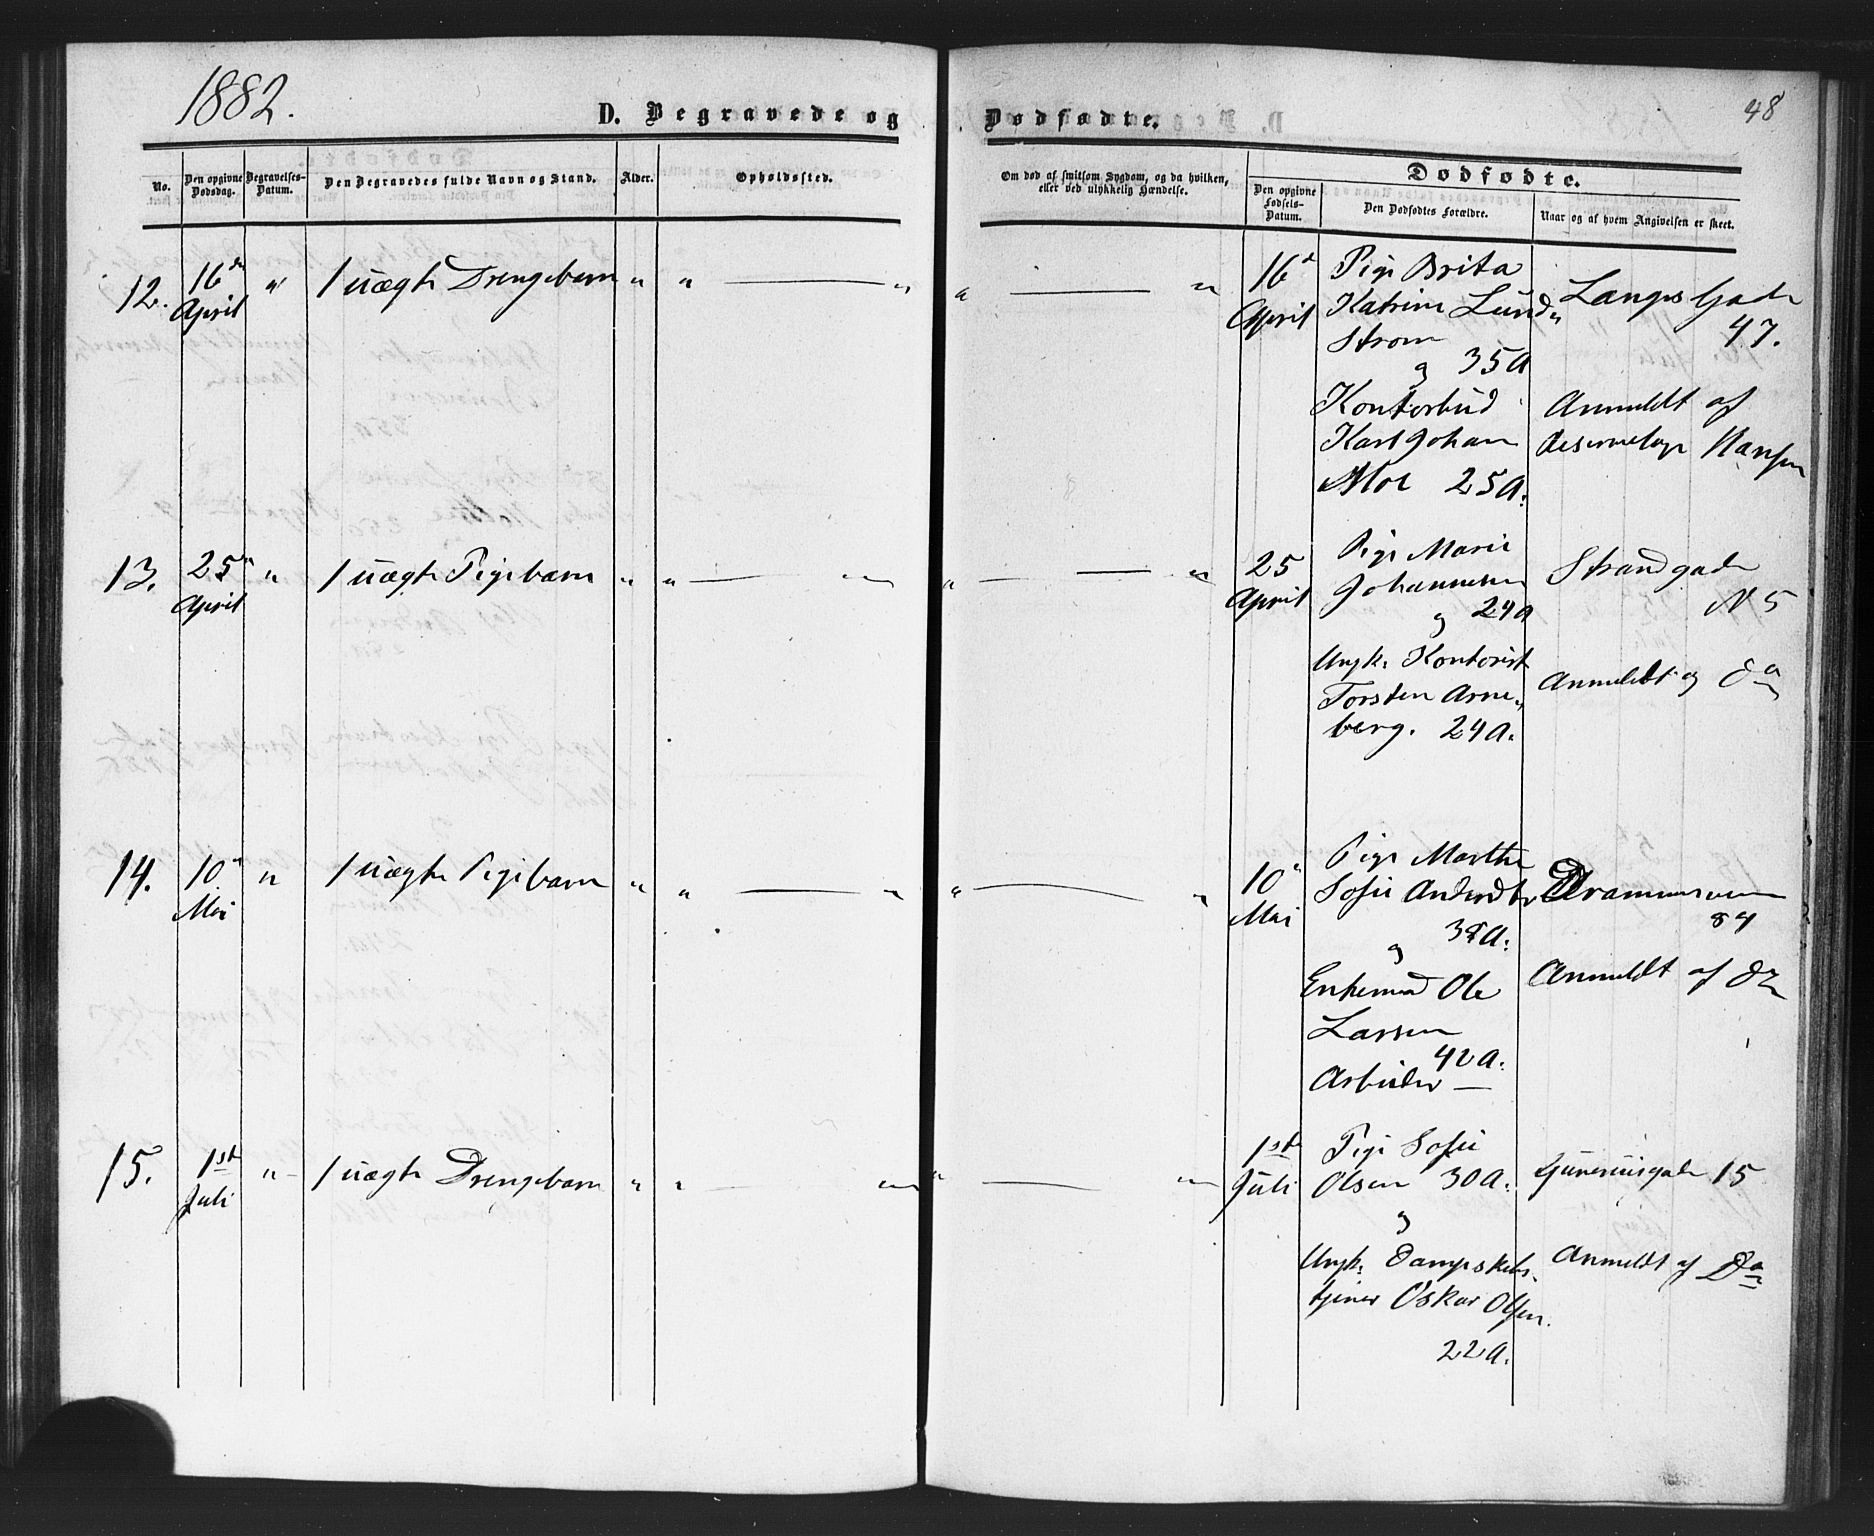 1882.
48
D. Begravede og Dødfødte.
No.
Den opgivne Dødsdag.
Begravelses-Datum.
Den Begravedes fulde Navn og Stand.
Alder.
Opholdssted.
Om død af smitsom Sygdom, og da hvilken, eller ved ulykkelig Hændelse.
Dødfødte.
Den opgivne Fødsels-Datum.
Den Dødfødtes Forældre.
Naar og af hvem Angivelsen er skeet.
12. 16de April " 1 uægte Drengebarn " " — " " — "
16d April
Pige Brita
Katrine Lund„
Strøm
og 35 A
Kontorbud
Karl Johan
Moe 25 A.
Langes Gade
47.
Anmeldt af
Reservelæge Hansen
13. 25 April " 1 uægte Pigebarn " " — " " — "
25 April
Pige Marie
Johannesen
og 24 A
Ungk. Kontorist
Torsten Arne„
berg. 24 A.
Strandgade
N 5
Anmeldt af do
14. 10 Mai " 1 uægte Pigebarn " " — " " — "
10 Mai
Pige Marthe
Sofie Andersdtr
og 38 A.
Enkemand Ole
Larsen
42 A.
Arbeider —
Drammensveien
84
Anmeldt af do
15. 1ste Juli " 1 uægte Drengebarn " " — " " — "
1ste Juli
Pige Sofie
Olsen 30 A.
og
Ungk. Dampskibs-
tjener Oskar Olsen.
22 A.
Gjüneriusgade 15
Anmeldt af Do